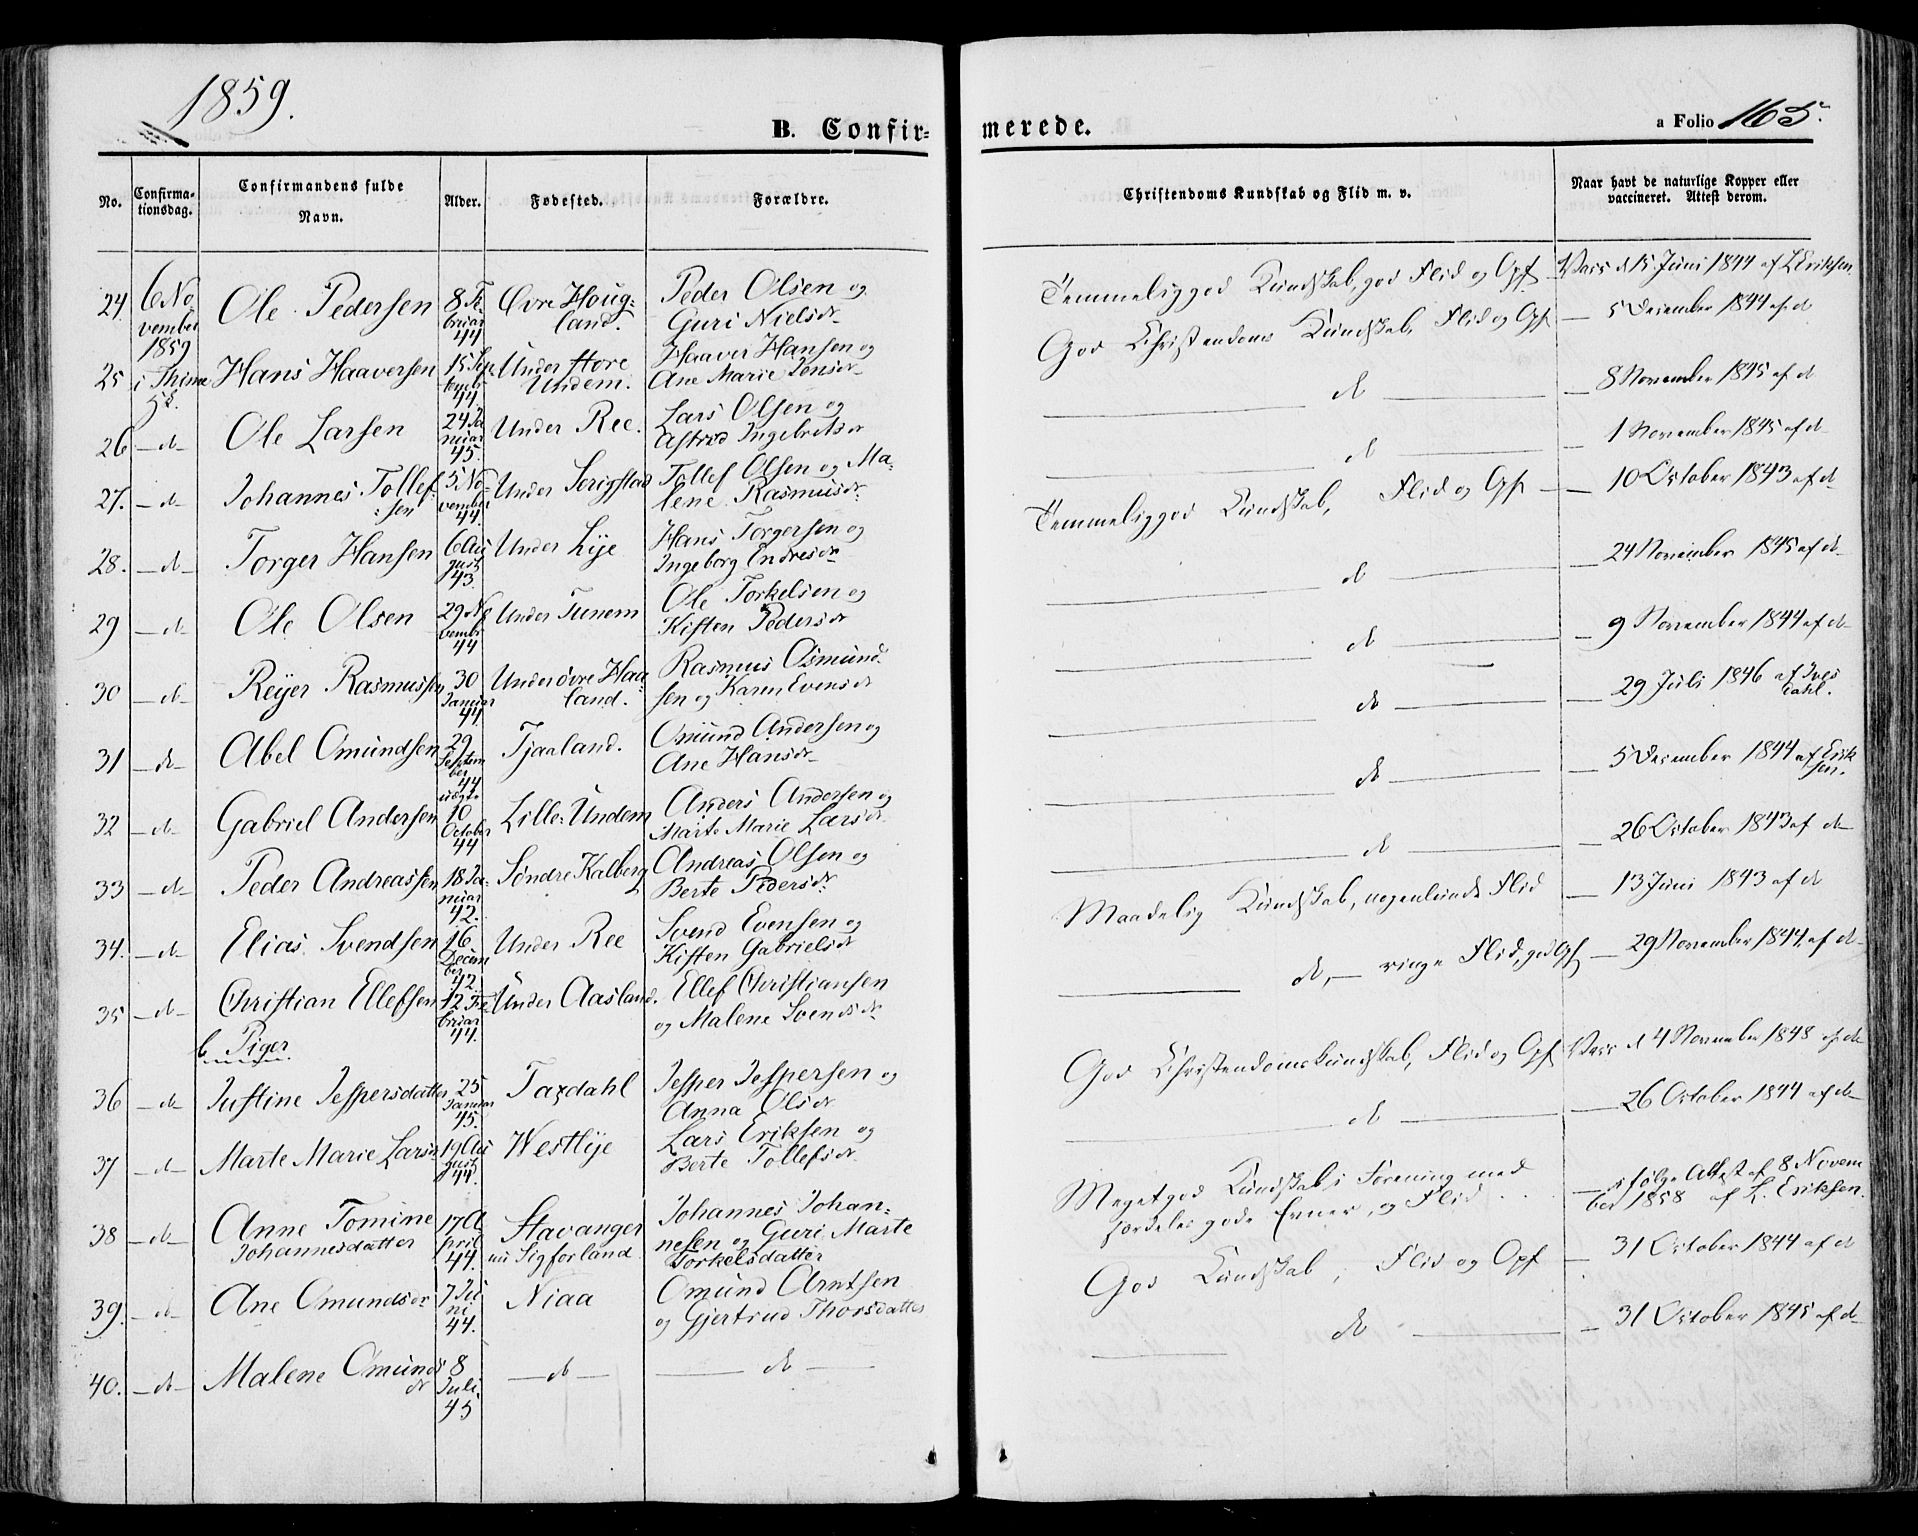 1859.
B. Confirmerede.
a Folio 165.
No.
Confirmationsdag.
Confirmandens fulde Navn.
Alder.
Fødested.
Forældre.
Christendoms Kundskab og Flid m. v.
Naar havt de naturlige Kopper eller vaccineret. Attest derom.
24 6 November 1859 i Thime Ole Pedersen 8 Februar 44 Øvre Hougland. Peder Olsen og Guri Nielsdr Temmelig god Kundskab, god Flid og Opf Vacc d 15 Juni 1844 af L Eriksen
25 Hans Haaversen 15 September 44. Under Store Undem. Haaver Hansen og Ane Marie Jensdr God Christendoms Kundskab, Flid og Opf — 5 December 1844 af do
26 — do — Ole Larsen 24 Januar 45. Under Ree. Lars Olsen og Astrid Ingebretsdr — do — — 8 November 1845 af do
27. — do Johannes Tollefsen 5 November 44. Under Serigstad Tollef Olsen og Malene Rasmusdr — do — — 1 November 1845 af do
28. — do — Torger Hansen 6 August 43. Under Lye Hans Torgersen og Ingeborg Endresdr Temmelig god Kundskab, Flid og Opf — 10 October 1843 af do
29 — do Ole Olsen 29 November 44 Under Tunem Ole Torkelsen og Kisten Pedersdr — do — 24 November 1845 af do
30 — do Reier Rasmussen 30 Januar 44. Under øvre Haaland. Rasmus Osmundsen og Karen Evensdr — do — — 9 November 1844 af do
31 — do — Abel Omundsen 29 September 44 Tjaaland. Omund Andersen og Ane Hansdr — do — — 29 Juli 1846 af Ivesdahl.
32 — do — Gabriel Andersen uægte 10 October 44 Lille Undem Anders Andersen og Marte Marie Larsdr — do — — 5 December 1844 af Eriksen.
33 — do — Peder Andreassen 18 Januar 42. Søndre Kalberg Andreas Olsen og Berte Pedersdr. — do — — 26 October 1843 af do
34. — do Elias Svendsen 16 December 42. Under Ree Svend Evensen og Kisten Gabrielsdr Maadelig Kundskab, nogenlunde Flid — 13 Juni 1843 af do
35 — do — Christian Ellefsen 12 Februar 44. Under Aasland. Ellef Christiansen og Malene Svendsdr — do, — ringe Flid, god Opf — 29 November 1844 af do
b. Piger
36 — do — Justine Jespersdatter 25 Januar 45. Taxdahl Jesper Jespersen og Anna Olsdr God Christendomskundskab, Flid og Opf Vacc d 4 November 1848 af do
37 — do — Marte Marie Larsdr 19 August 44. Westlye Lars Eriksen og Berte Tollefsdr — do — — 26 October 1844 af do
38 — do — Anne Tomine Johannesdatter 17 April 44. Stavanger nu Sigferland Johannes Johannesen og Guri Marte Torkelsdatter Meget god Kundskab i Forening med særdeles gode Evner, og Flid — ifølge Attest af 8 November 1858 af L. Eriksen.
39. — do Ane Omundsdr 7 Juni 44. Niaa Omund Arntsen og Gjertrud Thorsdatter God Kundskab, Flid og Opf — 31 October 1844 af do
40. — do — Malene Omundsdr 8 Juli 45 — do — — do — — do — — 31 October 1845 af do